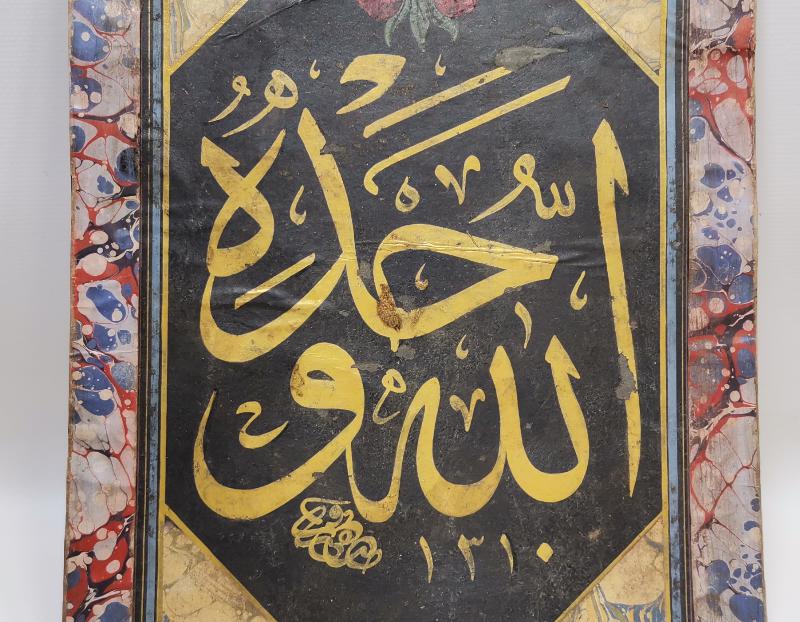 الله وحده
١٣١٠